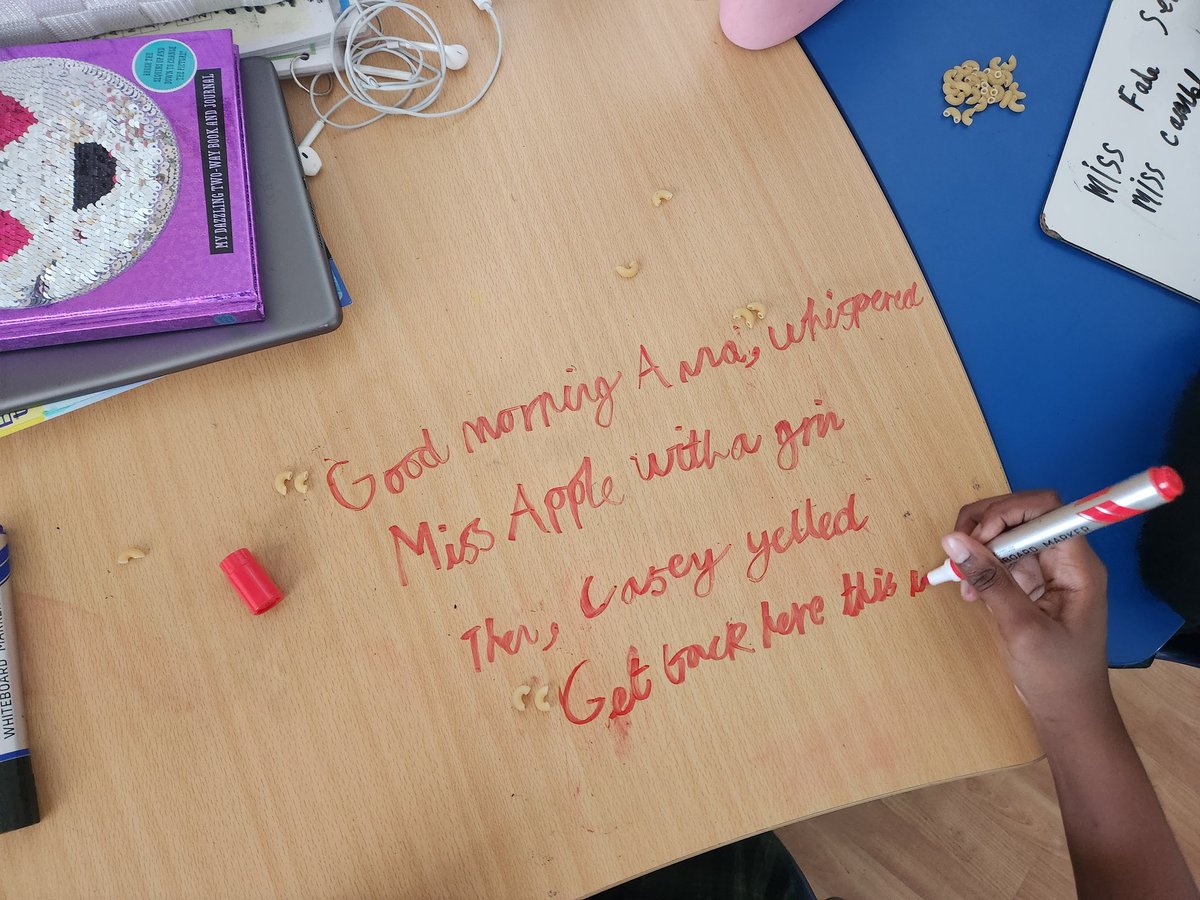 BRUSH THE
SEQUINS UP AND
DOWN TO CHANGE
THE PICTURE!
MY DAZZLING TWO-WAY BOOK AND JOURNAL
Miss
Miss
Good morning Anna, whispered
Miss Apple with a grin
Then, Casey yelled
Get back here this
BOARD MARKER
WHITEBOARD MARKER